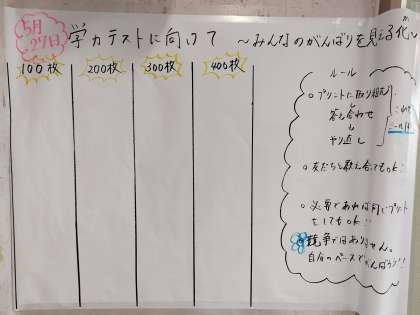 5月
27日
学力テストに向けて ～みんなのがんばりを見える化～
100枚 200枚 300枚 400枚
ルール
○プリントに取り組む
↓
答え合わせ
↓
やり直し
○友だちと教え合ってもOK!!
○必要であれば同じプリント
をしてもOK!!
競争ではありません。
自分のペースでがんばろう!!